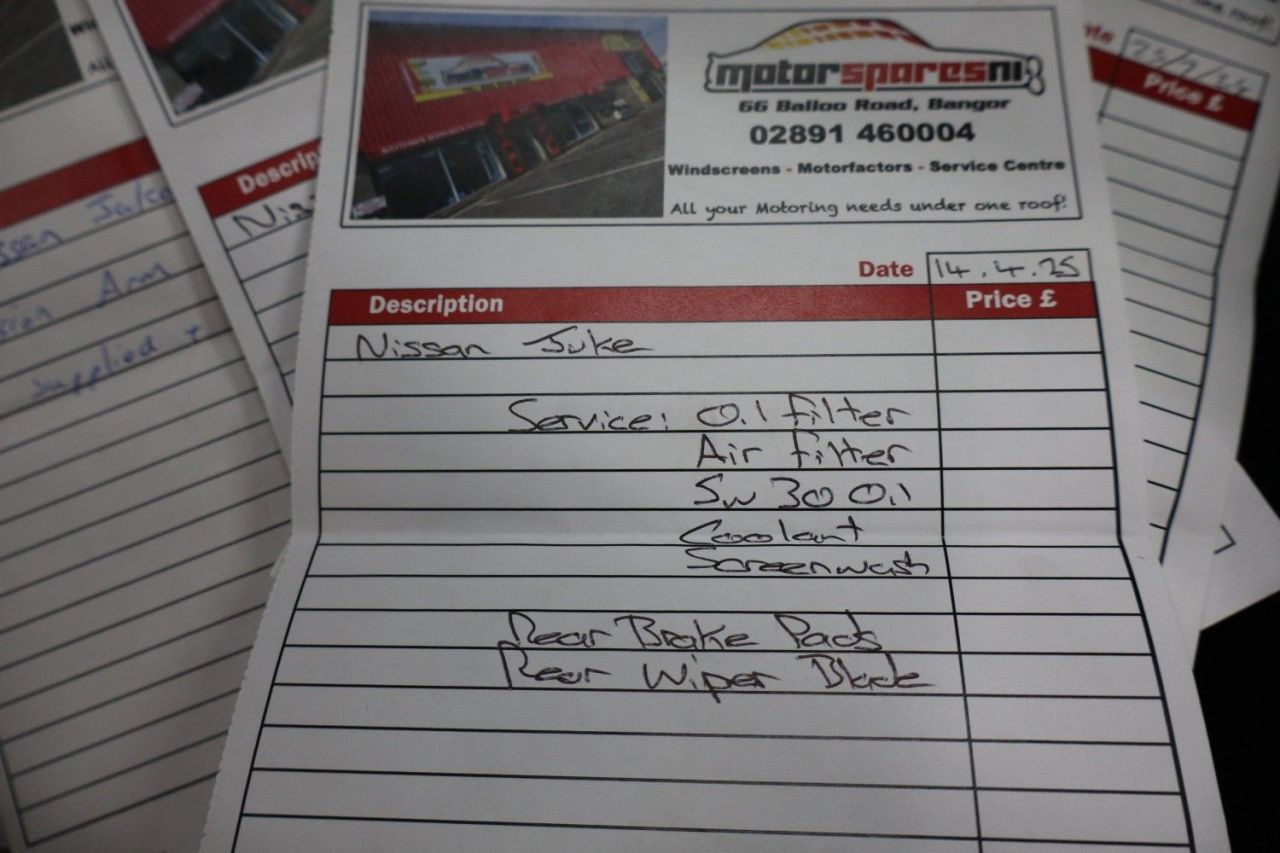 motorsparesni
66 Balloo Road, Bangor
02891 460004
Windscreens - Motorfactors - Service Centre
All your Motoring needs under one roof!
Date 14.4.25
Description Price £
Nissan Juke
Service: Oil filter
Air filter
5w 30 Oil
Coolant
Screenwash
Rear Brake Pads
Rear Wiper Blade
Descrip
Nis
ssan Juke
Arm
supplied +
one roof!
Price £